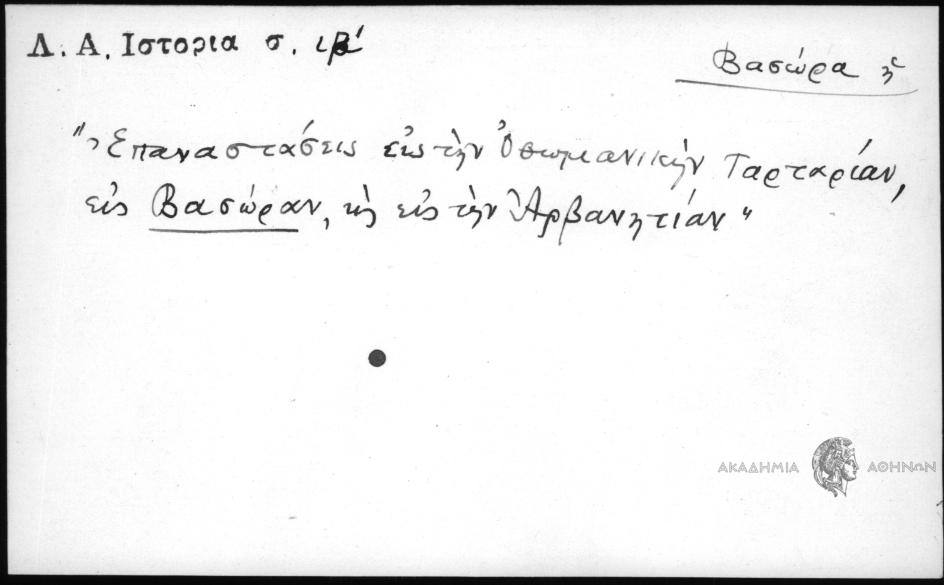 Λ. Α. Ιστορια σ. ιβ'
Βασώρα ἡ
"Ἐπαναστάσεις εἰς τὴν Ὀθωμανικὴν Ταρταρίαν,
εἰς Βασώραν, κὴ εἰς τὴν Ἀρβανητίαν"
ΑΚΑΔΗΜΙΑ ΑΘΗΝΩΝ